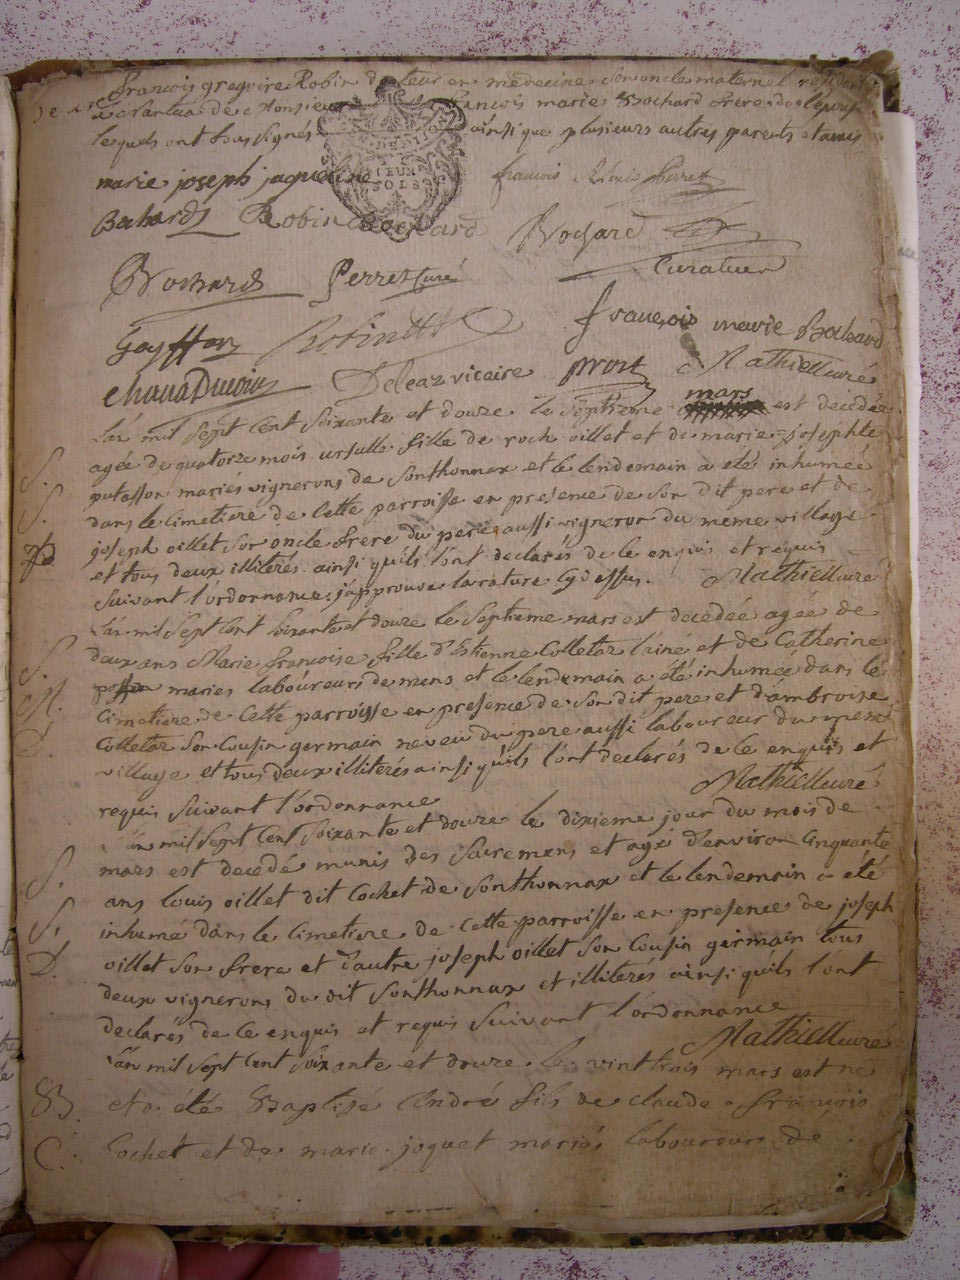 françois gregoire Robin docteur en medecine son oncle maternel
de Monsieur françois marie Bochard frere de l'epouse
lesquels ont sous signés ainsi que plusieurs autres parents et amis
DEUX
SOLS
marie joseph jaqueline françois
Bahard Robin Bochard Bochard
Bochard Perret curé Curateur
françois marie Bahard
Robin
Deleaz vicaire prost Mathieu curé
mars
L'an mil sept cent soixante et douze le septieme est decedée
S. agée de quatorze mois ursulle fille de roch oillet et de marie josephte
putasson maries vignerons de Sonthonnax et le lendemain a été inhumeé
S. dans le cimetiere de cette parroisse en presence de son dit pere et de
joseph oillet son oncle frere du pere aussi vigneron du meme village
et tous deux illiterés ainsi qu'ils l'ont declarés de ce enquis et requis
suivant l'ordonnance j'approuve la rature cy dessus. Mathieu curé
L'an mil sept cent soixante et douze le septieme mars est decedée agée de
S. deux ans Marie francoise fille d'Estienne Colletaz l'ainé et de Catherine
M. maries laboureurs de mens et le lendemain a été inhumeé dans le
cimetiere de cette parroisse en presence de son dit pere et d'ambroise
D. Colletaz son cousin germain neveu du pere aussi laboureur du meme
village et tous deux illiterés ainsi qu'ils l'ont declarés de ce enquis et
requis suivant l'ordonnance Mathieu curé
L'an mil sept cent soixante et douze le dixieme jour du mois de
S. mars est decedé munis des sacremens et agé d'environ cinquante
ans louis oillet dit Cochet de Sonthonnax et le lendemain a été
S. inhumé dans le cimetiere de cette parroisse en presence de joseph
D. oillet son frere et d'autre joseph oillet son cousin germain tous
deux vignerons du dit Sonthonnax et illiterés ainsi qu'ils l'ont
declarés de ce enquis et requis suivant l'ordonnance
Mathieu curé
L'an mil sept cent soixante et douze le vint trois mars est né
B. et a été Baptisé André fils de claude françois
C. Cochet et de marie joquet mariés laboureurs de